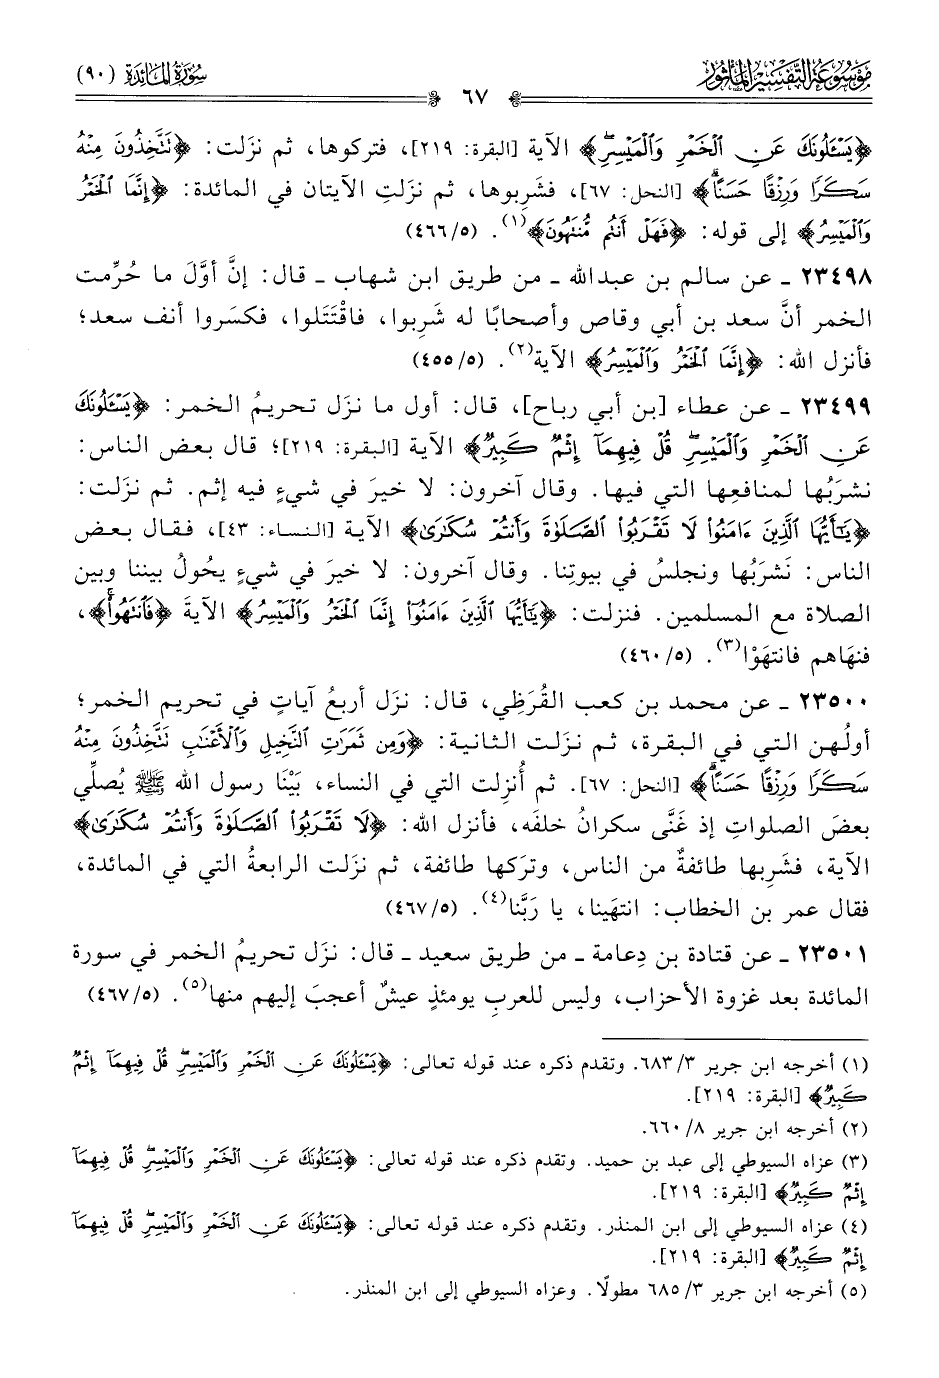 مَوْسُوعَةُ التَّفْسِيرِ المَأْثُورِ
٦٧
سُورَةُ المَائِدَة (٩٠)
﴿يَسْـَٔلُونَكَ عَنِ ٱلْخَمْرِ وَٱلْمَيْسِرِۖ﴾ الآية [البقرة: ٢١٩]، فتركوها، ثم نزَلت: ﴿تَتَّخِذُونَ مِنْهُ
سَكَرًا وَرِزْقًا حَسَنًاۗ﴾ [النحل: ٦٧]، فشَرِبوها، ثم نزَلتِ الآيتان في المائدة: ﴿إِنَّمَا ٱلْخَمْرُ
وَٱلْمَيْسِرُ﴾ إلى قوله: ﴿فَهَلْ أَنتُم مُّنتَهُونَ﴾(١). (٤٦٦/٥)
٢٣٤٩٨ ـ عن سالم بن عبدالله ـ من طريق ابن شهاب ـ قال: إنَّ أوَّلَ ما حُرِّمت
الخمر أنَّ سعد بن أبي وقاص وأصحابًا له شَرِبوا، فاقْتَتَلوا، فكسَروا أنف سعد؛
فأنزل الله: ﴿إِنَّمَا ٱلْخَمْرُ وَٱلْمَيْسِرُ﴾ الآية(٢). (٤٥٥/٥)
٢٣٤٩٩ ـ عن عطاء [بن أبي رباح]، قال: أول ما نزَل تحريمُ الخمر: ﴿يَسْـَٔلُونَكَ
عَنِ ٱلْخَمْرِ وَٱلْمَيْسِرِۖ قُلْ فِيهِمَآ إِثْمٌ كَبِيرٌ﴾ الآية [البقرة: ٢١٩]؛ قال بعض الناس:
نشرَبُها لمنافعِها التي فيها. وقال آخرون: لا خيرَ في شيءٍ فيه إثم. ثم نزَلت:
﴿يَٰٓأَيُّهَا ٱلَّذِينَ ءَامَنُوا۟ لَا تَقْرَبُوا۟ ٱلصَّلَوٰةَ وَأَنتُمْ سُكَٰرَىٰ﴾ الآية [النساء: ٤٣]، فقال بعض
الناس: نَشرَبُها ونجلسُ في بيوتِنا. وقال آخرون: لا خيرَ في شيءٍ يحُولُ بيننا وبين
الصلاة مع المسلمين. فنزلت: ﴿يَٰٓأَيُّهَا ٱلَّذِينَ ءَامَنُوٓا۟ إِنَّمَا ٱلْخَمْرُ وَٱلْمَيْسِرُ﴾ الآيةَ ﴿فَٱنتَهُوا۟ۚ﴾،
فنهَاهم فانتهَوْا(٣). (٤٦٠/٥)
٢٣٥٠٠ ـ عن محمد بن كعب القُرَظِي، قال: نزَل أربعُ آياتٍ في تحريم الخمر؛
أولُهن التي في البقرة، ثم نزَلت الثانية: ﴿وَمِن ثَمَرَٰتِ ٱلنَّخِيلِ وَٱلْأَعْنَٰبِ تَتَّخِذُونَ مِنْهُ
سَكَرًا وَرِزْقًا حَسَنًاۗ﴾ [النحل: ٦٧]. ثم أُنزِلت التي في النساء، بَيْنَا رسول الله ﷺ يُصلِّي
بعضَ الصلواتِ إذ غَنَّى سكرانُ خلفَه، فأنزل الله: ﴿لَا تَقْرَبُوا۟ ٱلصَّلَوٰةَ وَأَنتُمْ سُكَٰرَىٰ﴾
الآية، فشَرِبها طائفةٌ من الناس، وتركها طائفة، ثم نزَلت الرابعةُ التي في المائدة،
فقال عمر بن الخطاب: انتهَينا، يا رَبَّنا(٤). (٤٦٧/٥)
٢٣٥٠١ ـ عن قتادة بن دِعامة ـ من طريق سعيد ـ قال: نزَل تحريمُ الخمر في سورة
المائدة بعد غزوة الأحزاب، وليس للعربِ يومئذٍ عيشٌ أعجبَ إليهم منها(٥). (٤٦٧/٥)
(١) أخرجه ابن جرير ٦٨٣/٣. وتقدم ذكره عند قوله تعالى: ﴿يَسْـَٔلُونَكَ عَنِ ٱلْخَمْرِ وَٱلْمَيْسِرِۖ قُلْ فِيهِمَآ إِثْمٌ
كَبِيرٌ﴾ [البقرة: ٢١٩].
(٢) أخرجه ابن جرير ٦٦٠/٨.
(٣) عزاه السيوطي إلى عبد بن حميد. وتقدم ذكره عند قوله تعالى: ﴿يَسْـَٔلُونَكَ عَنِ ٱلْخَمْرِ وَٱلْمَيْسِرِۖ قُلْ فِيهِمَآ
إِثْمٌ كَبِيرٌ﴾ [البقرة: ٢١٩].
(٤) عزاه السيوطي إلى ابن المنذر. وتقدم ذكره عند قوله تعالى: ﴿يَسْـَٔلُونَكَ عَنِ ٱلْخَمْرِ وَٱلْمَيْسِرِۖ قُلْ فِيهِمَآ
إِثْمٌ كَبِيرٌ﴾ [البقرة: ٢١٩].
(٥) أخرجه ابن جرير ٦٨٥/٣ مطولًا. وعزاه السيوطي إلى ابن المنذر.